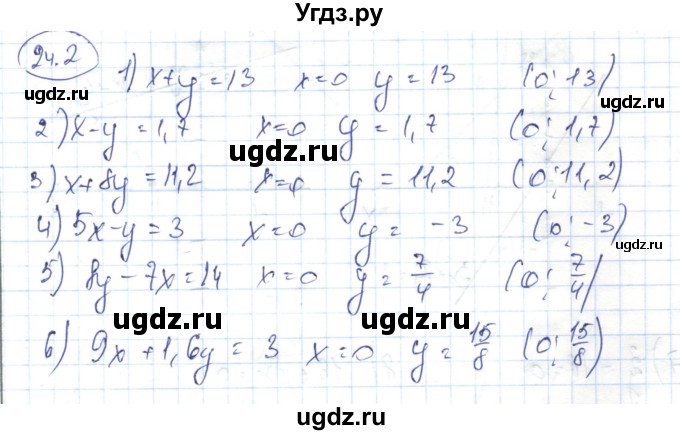 Угдз.ру
24.2
1) x+y=13 x=0 y=13 (0; 13)
ugdz.ru ugdz.ru
2) x-y=1,7 x=0 y=1,7 (0; 1,7)
ugdz.ru
3) x+8y=11,2 x=0 y=11,2 (0; 11,2)
ugdz.ru ugdz.ru
4) 5x-y=3 x=0 y=-3 (0; -3)
ugdz.ru
5) 8y-7x=14 x=0 y=7/4 (0; 7/4)
ugdz.ru ugdz.ru
6) 9x+1,6y=3 x=0 y=15/8 (0; 15/8)
ugdz.ru